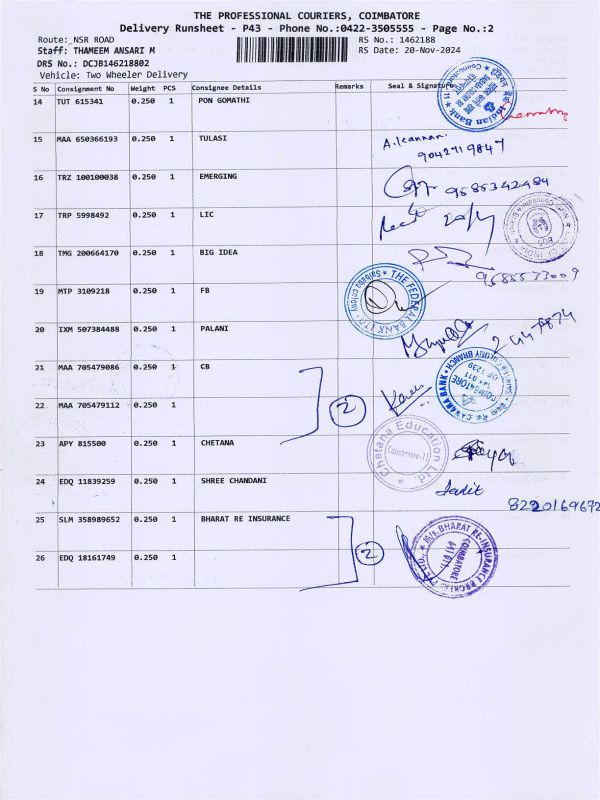 THE PROFESSIONAL COURIERS, COIMBATORE
Delivery Runsheet - P43 - Phone No.:0422-3505555 - Page No.:2
Route: NSR ROAD RS No.: 1462188
Staff: THAMEEM ANSARI M RS Date: 20-Nov-2024
DRS No.: DCJB146218802
Vehicle: Two Wheeler Delivery
S No Consignment No Weight PCS Consignee Details Remarks Seal & Signature
14 TUT 615341 0.250 1 PON GOMATHI
Indian Bank
15 MAA 650366193 0.250 1 TULASI A.Kannan
9042719847
16 TRZ 100100038 0.250 1 EMERGING 9585342484
17 TRP 5998492 0.250 1 LIC
18 TMG 200664170 0.250 1 BIG IDEA
9585533009
19 MTP 3109218 0.250 1 FB
THE FEDERAL BANK LTD
20 IXM 507384488 0.250 1 PALANI
21 MAA 705479086 0.250 1 CB
CANARA BANK
COIMBATORE
DP 1239
22 MAA 705479112 0.250 1 2
23 APY 815500 0.250 1 CHETANA
Chetana Education Ltd.
Coimbatore-11
24 EDQ 11839259 0.250 1 SHREE CHANDANI
8220169672
25 SLM 358989652 0.250 1 BHARAT RE INSURANCE
M/s. BHARAT RE-INSURANCE BROKERS
COIMBATORE
26 EDQ 18161749 0.250 1 2